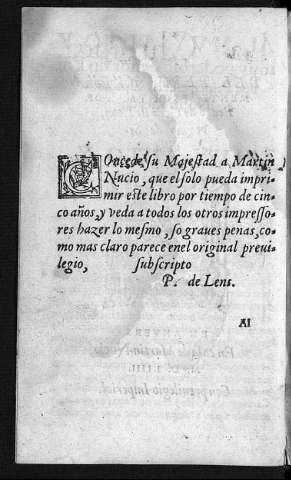 COncede su Majestad a Martin
Nucio, que el solo pueda impri-
mir este libro por tiempo de cin-
co años, y veda a todos los otros impresso-
res hazer lo mesmo, so graues penas, co-
mo mas claro parece enel original preui-
legio, subscripto
P. de Lens.
AI